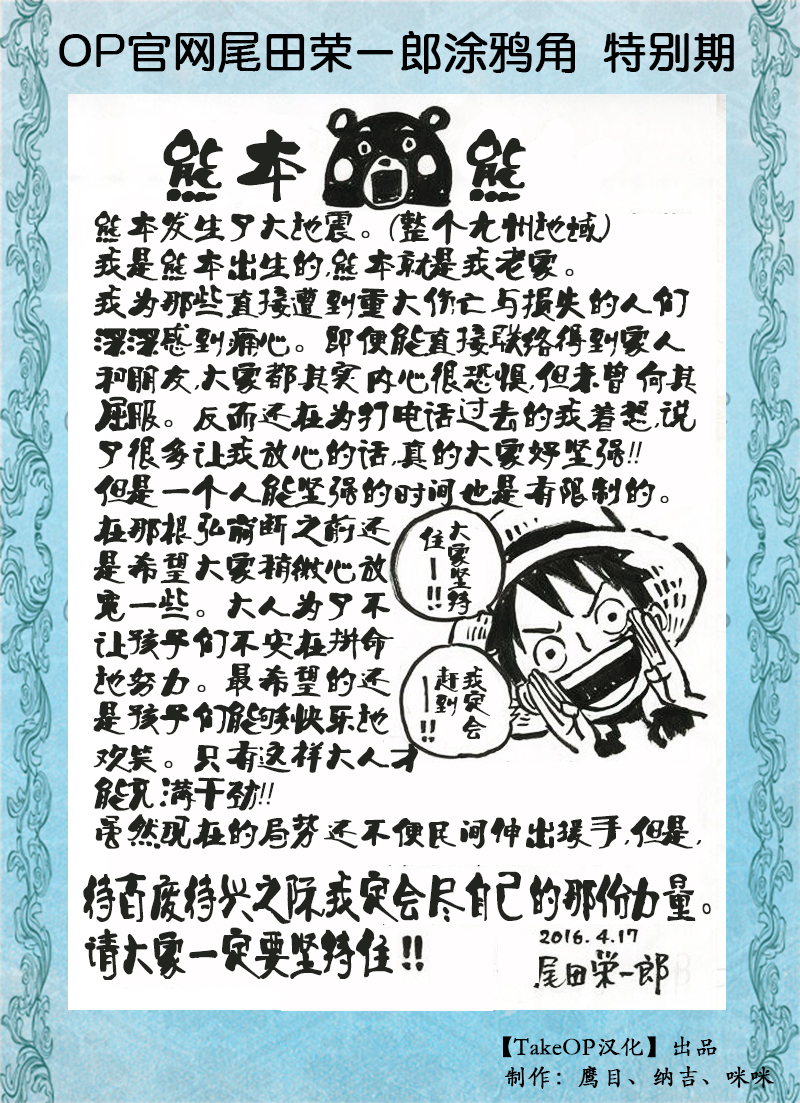 OP官网尾田荣一郎涂鸦角 特别期
熊本熊
熊本发生了大地震。(整个九州地域)
我是熊本出生的,熊本就是我老家。
我为那些直接遭到重大伤亡与损失的人们
深深感到痛心。即便能直接联络得到家人
和朋友,大家都其实内心很恐惧,但未曾向其
屈服。反而还在为打电话过去的我着想,说
了很多让我放心的话,真的大家好坚强!!
但是一个人能坚强的时间也是有限制的。
在那根弦崩断之前还
是希望大家稍微心放
宽一些。大人为了不
让孩子们不安在拼命
地努力。最希望的还
是孩子们能够快乐地
欢笑。只有这样大人才
能充满干劲!!
大家坚持
住——!!
我定会
赶到
——!!
虽然现在的局势还不便民间伸出援手,但是,
待百废待兴之际我定会尽自己的那份力量。
请大家一定要坚持住!!
2016.4.17
尾田栄一郎
【TakeOP汉化】出品
制作:鹰目、纳吉、咪咪